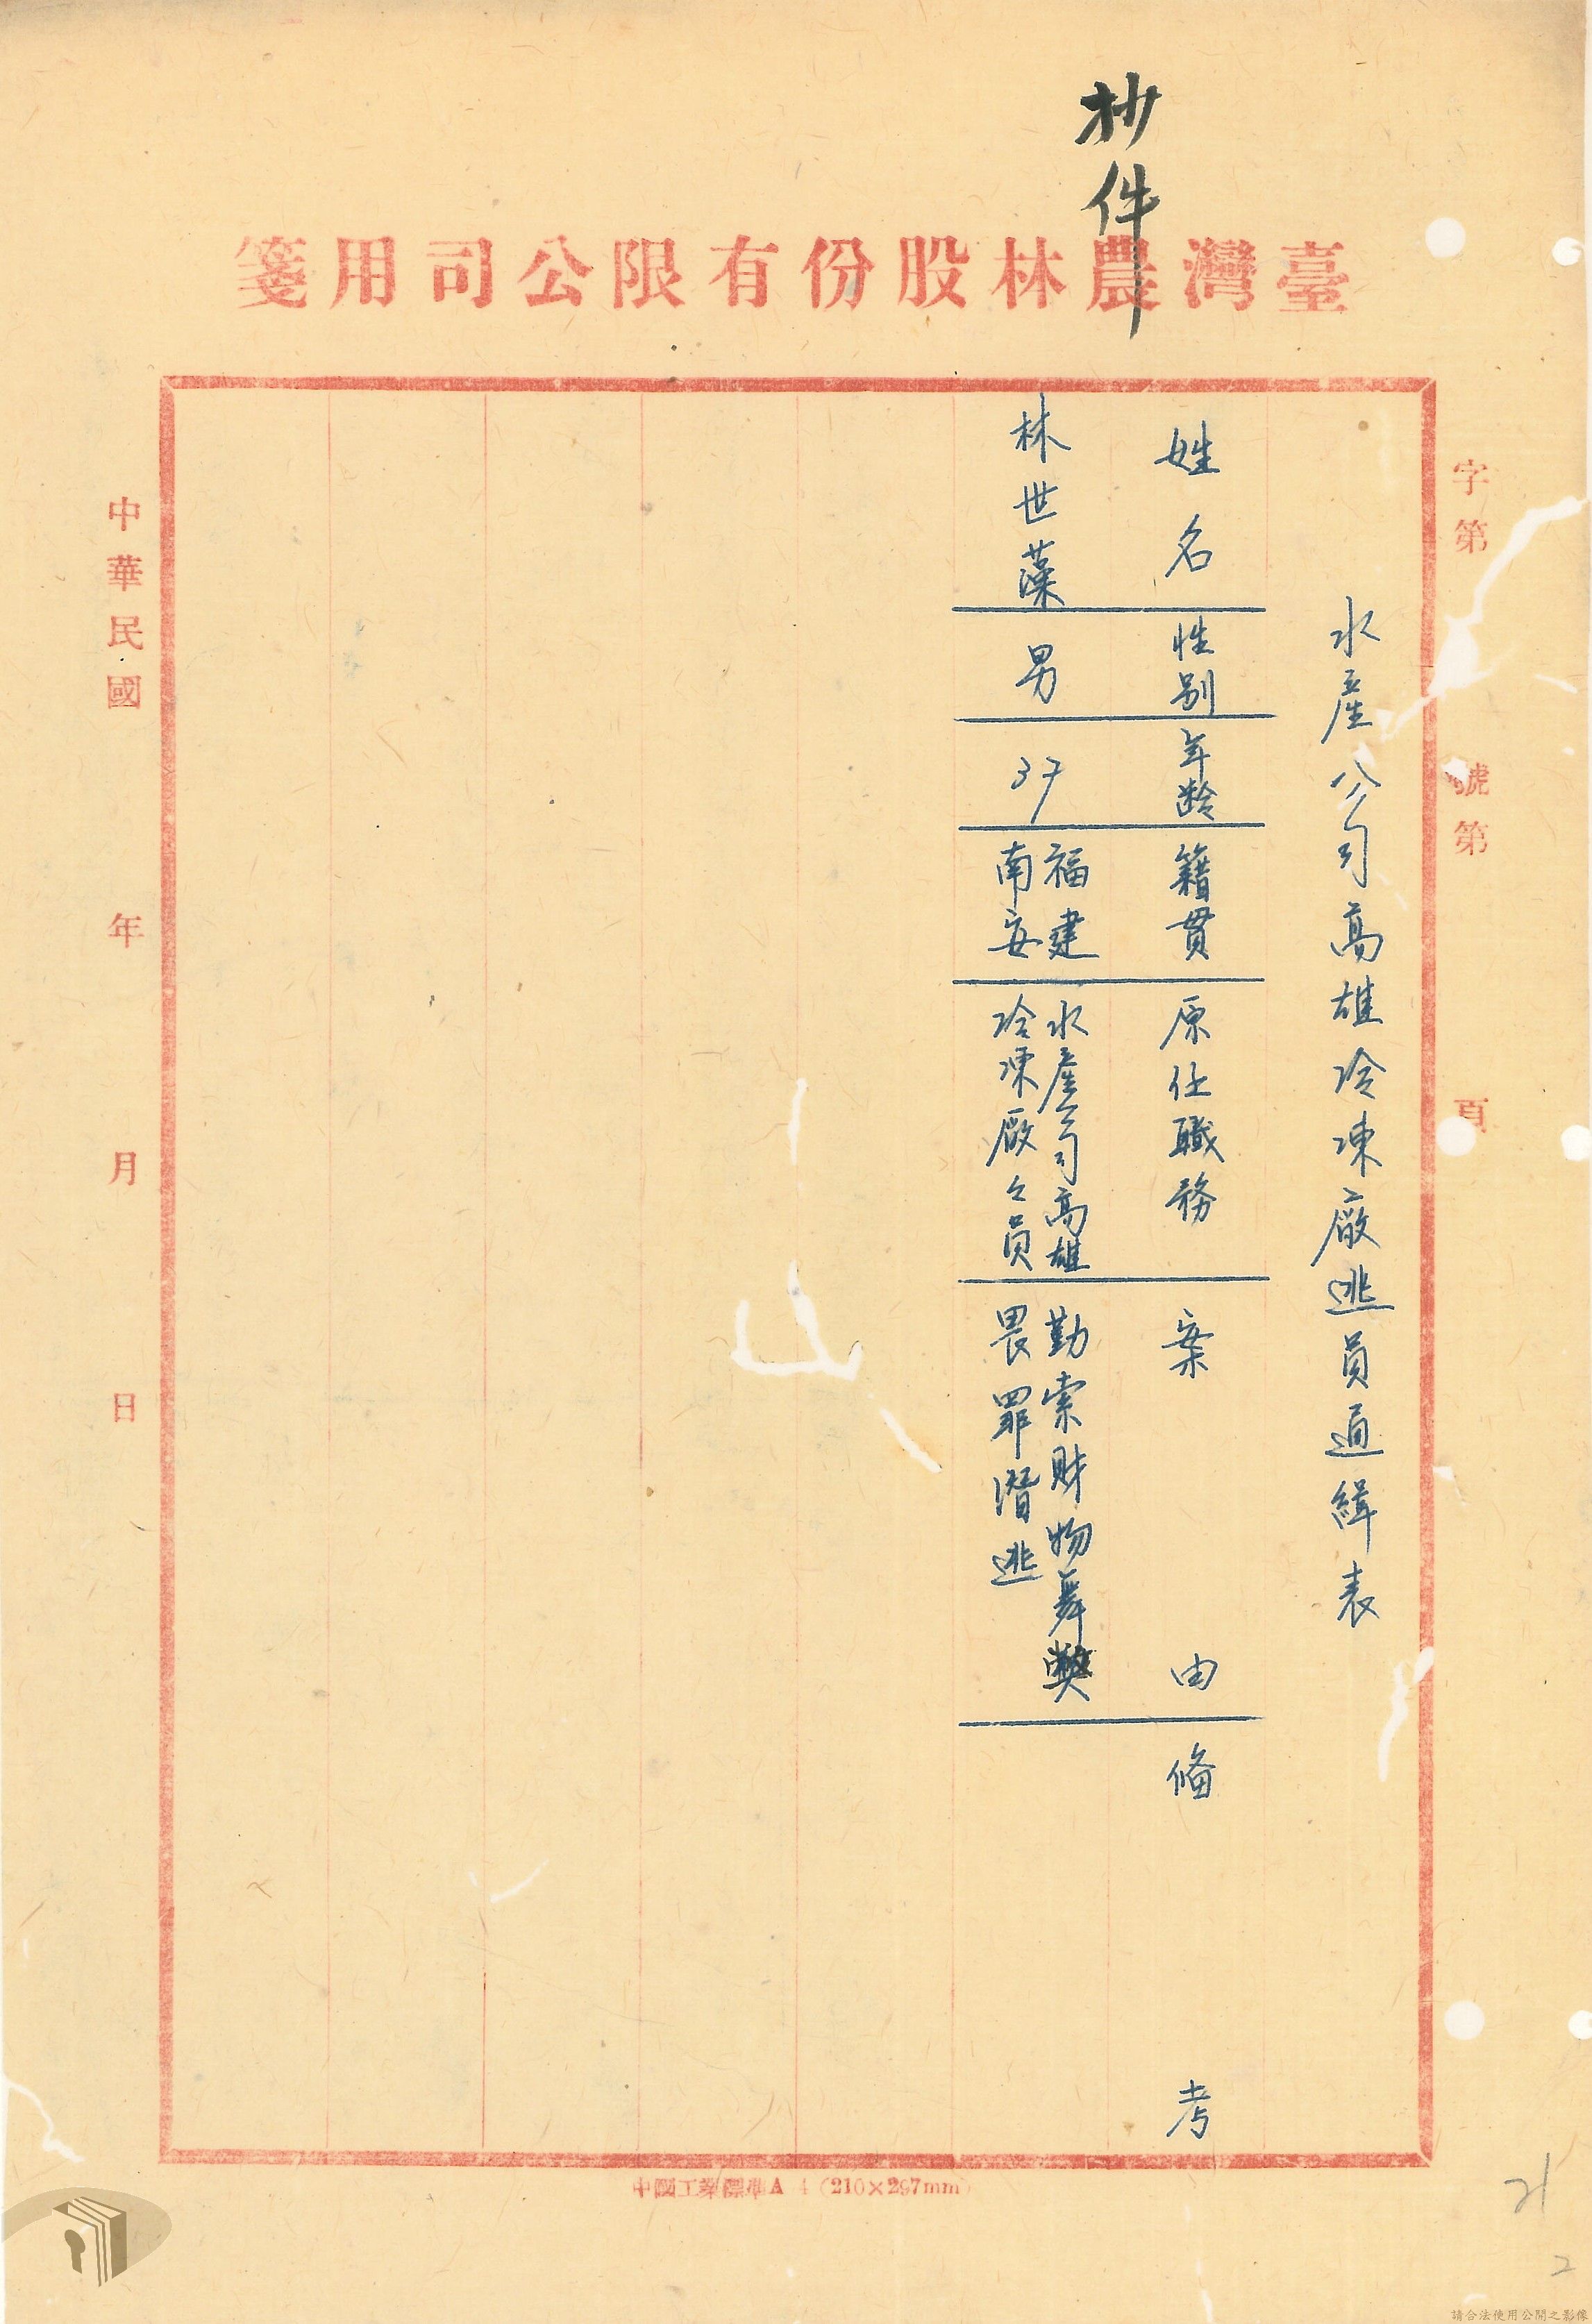 抄件
臺灣農林股份有限公司用箋
字第 號第 頁
水產公司高雄冷凍廠逃員通緝表
姓名 性別 年齡 籍貫 原任職務 案由 俻考
林世藻 男 37 福建南安 水產公司高雄冷凍廠々員 勤索財物舞弊畏罪潛逃
中華民國 年 月 日
中國工業標準A 4 (210×297mm)
21
2
請合法使用公開之影像